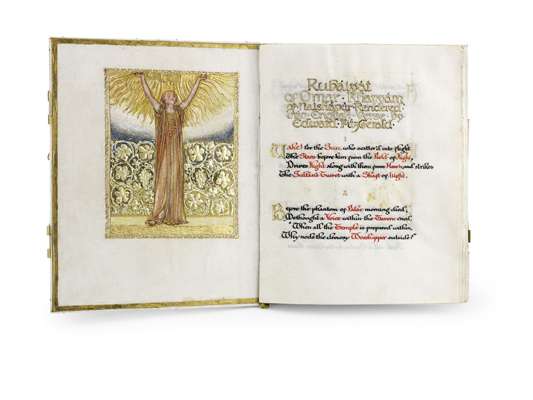 Rubáiyát
of Omar Khayyám
of Naishápúr Rendered
into English Verse by
Edward FitzGerald.
I
Wake! For the Sun, who scatter'd into flight
The Stars before him from the Field of Night,
Drives Night along with them from Heav'n, and strikes
The Sultán's Turret with a Shaft of Light.
Before the phantom of False morning died,
Methought a Voice within the Tavern cried,
"When all the Temple is prepared within,
Why nods the drowsy Worshipper outside?"